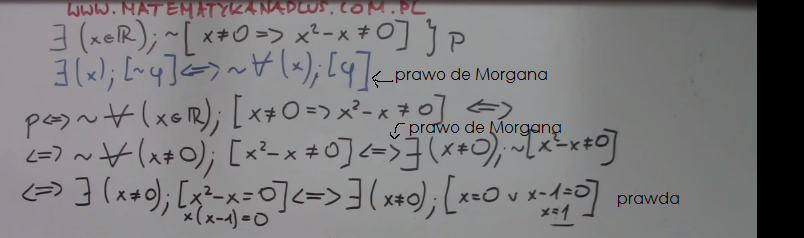 WWW.MATEMATYKANAPLUS.COM.PL
∃ (x∈ℝ); ~[x≠0 => x²-x≠0] } p
∃(x); [~φ] <=> ~∀(x); [φ] ← prawo de Morgana
p <=> ~∀(x∈ℝ); [x≠0 => x²-x≠0] <=>
prawo de Morgana
<=> ~∀(x≠0); [x²-x≠0] <=> ∃(x≠0); ~[x²-x≠0]
<=> ∃(x≠0); [x²-x=0] <=> ∃(x≠0); [x=0 v x-1=0] prawda
x(x-1)=0 x=1